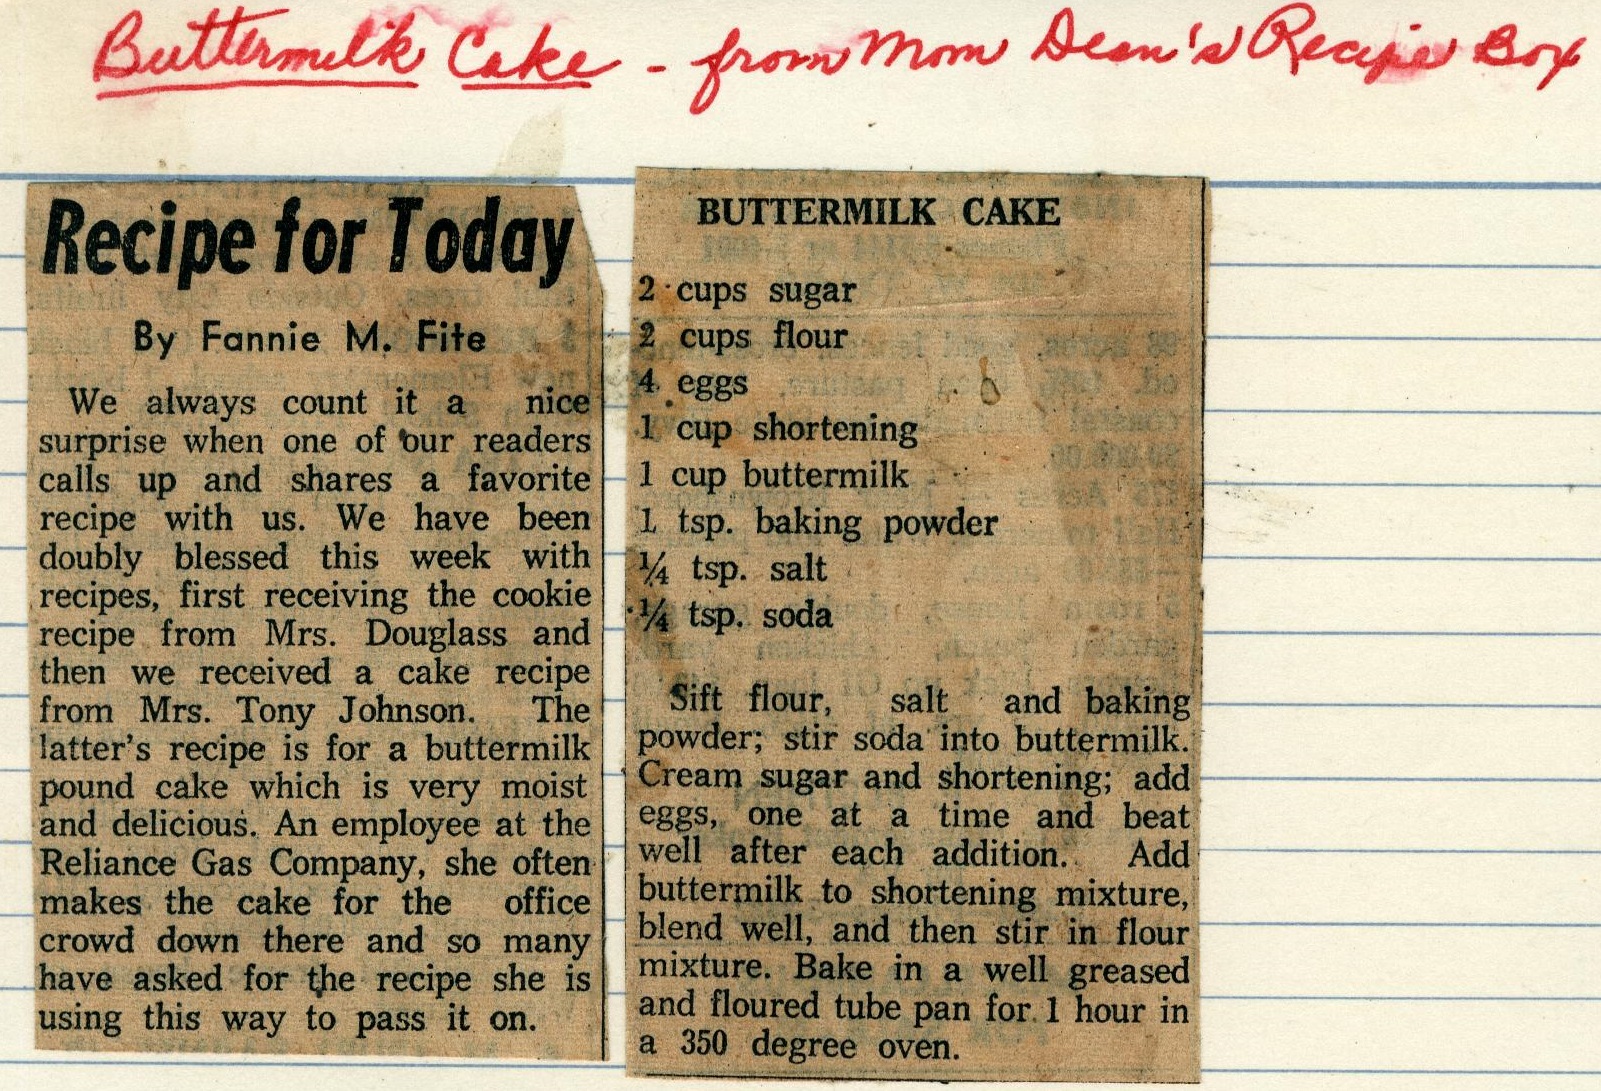 Buttermilk Cake - from Mom Dean's Recipe Box
Recipe for Today
By Fannie M. Fite
We always count it a nice
surprise when one of our readers
calls up and shares a favorite
recipe with us. We have been
doubly blessed this week with
recipes, first receiving the cookie
recipe from Mrs. Douglass and
then we received a cake recipe
from Mrs. Tony Johnson. The
latter's recipe is for a buttermilk
pound cake which is very moist
and delicious. An employee at the
Reliance Gas Company, she often
makes the cake for the office
crowd down there and so many
have asked for the recipe she is
using this way to pass it on.
BUTTERMILK CAKE
2 cups sugar
2 cups flour
4 eggs
1 cup shortening
1 cup buttermilk
1 tsp. baking powder
¼ tsp. salt
¼ tsp. soda
Sift flour, salt and baking
powder; stir soda into buttermilk.
Cream sugar and shortening; add
eggs, one at a time and beat
well after each addition. Add
buttermilk to shortening mixture,
blend well, and then stir in flour
mixture. Bake in a well greased
and floured tube pan for 1 hour in
a 350 degree oven.